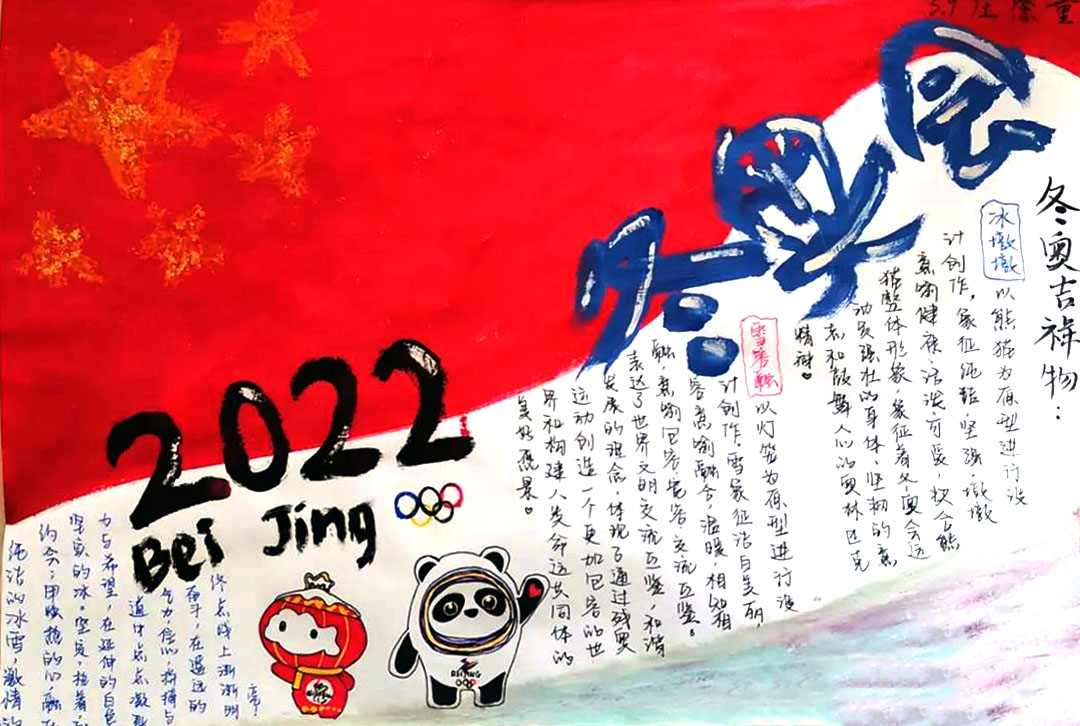 冬奥会
2022
Bei Jing
冬奥吉祥物:
冰墩墩以熊猫为原型进行设
计创作,象征纯洁,坚强,墩墩
意喻健康活泼可爱,契合熊
猫整体形象,象征着冬奥会运
动员强壮的身体、坚韧的意
志和鼓舞人心的奥林匹克
精神♥
雪容融以灯笼为原型进行设
计创作,雪象征洁白美丽,
容意喻融合,温暖,相知相
融,意喻包容宽容交流互鉴。
表达了世界文明交流互鉴,和谐
发展的理念,体现了通过残奥
运动创造一个更加包容的世
界和构建人类命运共同体的
美好愿景♥
纯洁的冰雪,激情的
约会;用炽热的心融
坚实的冰。抱着
力与希望,在延伸的白色
道中点点凝聚
气力,信心,拼搏与
奋斗,在遥远的
终点线上渐渐明
亮
BEIJING